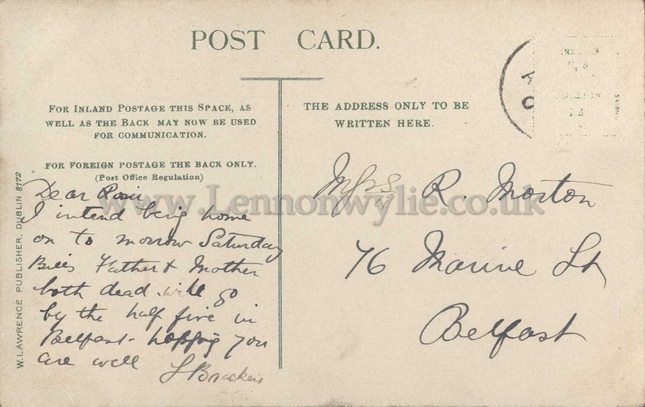 POST CARD.
FOR INLAND POSTAGE THIS SPACE, AS
WELL AS THE BACK MAY NOW BE USED
FOR COMMUNICATION.
FOR FOREIGN POSTAGE THE BACK ONLY.
(Post Office Regulation)
THE ADDRESS ONLY TO BE
WRITTEN HERE.
W. LAWRENCE PUBLISHER, DUBLIN 8172
www.Lennonwylie.co.uk
Dear
I intend being home
on to morrow Saturday
Father & Mother
both dead. will go
by the half five in
Belfast - hopping you
are well
Mrs R. Morton
76 Marine St
Belfast